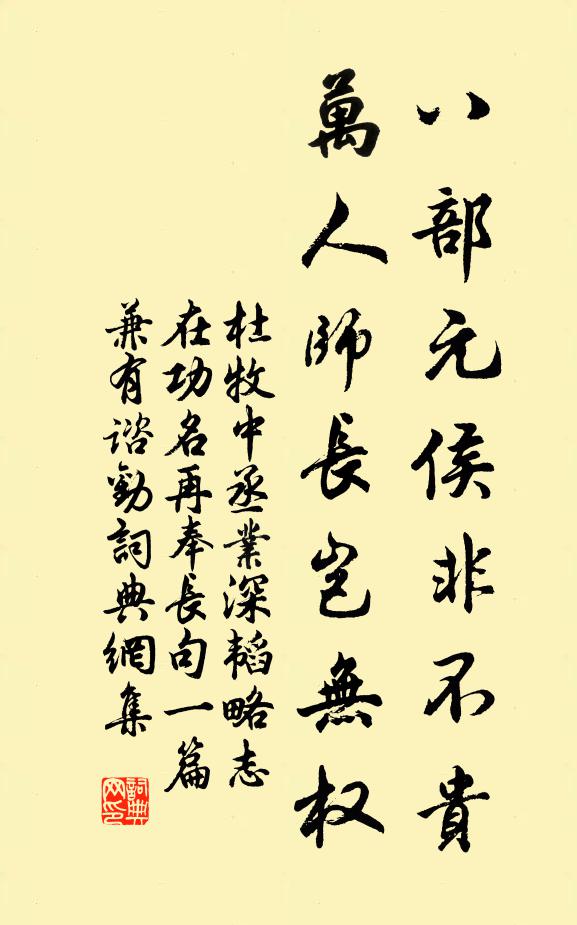 八部元侯非不貴
萬人師長豈無权
杜牧中丞業深韜略志
在功名再奉長句一篇
兼有諮勸詞典網集
詞典
网印